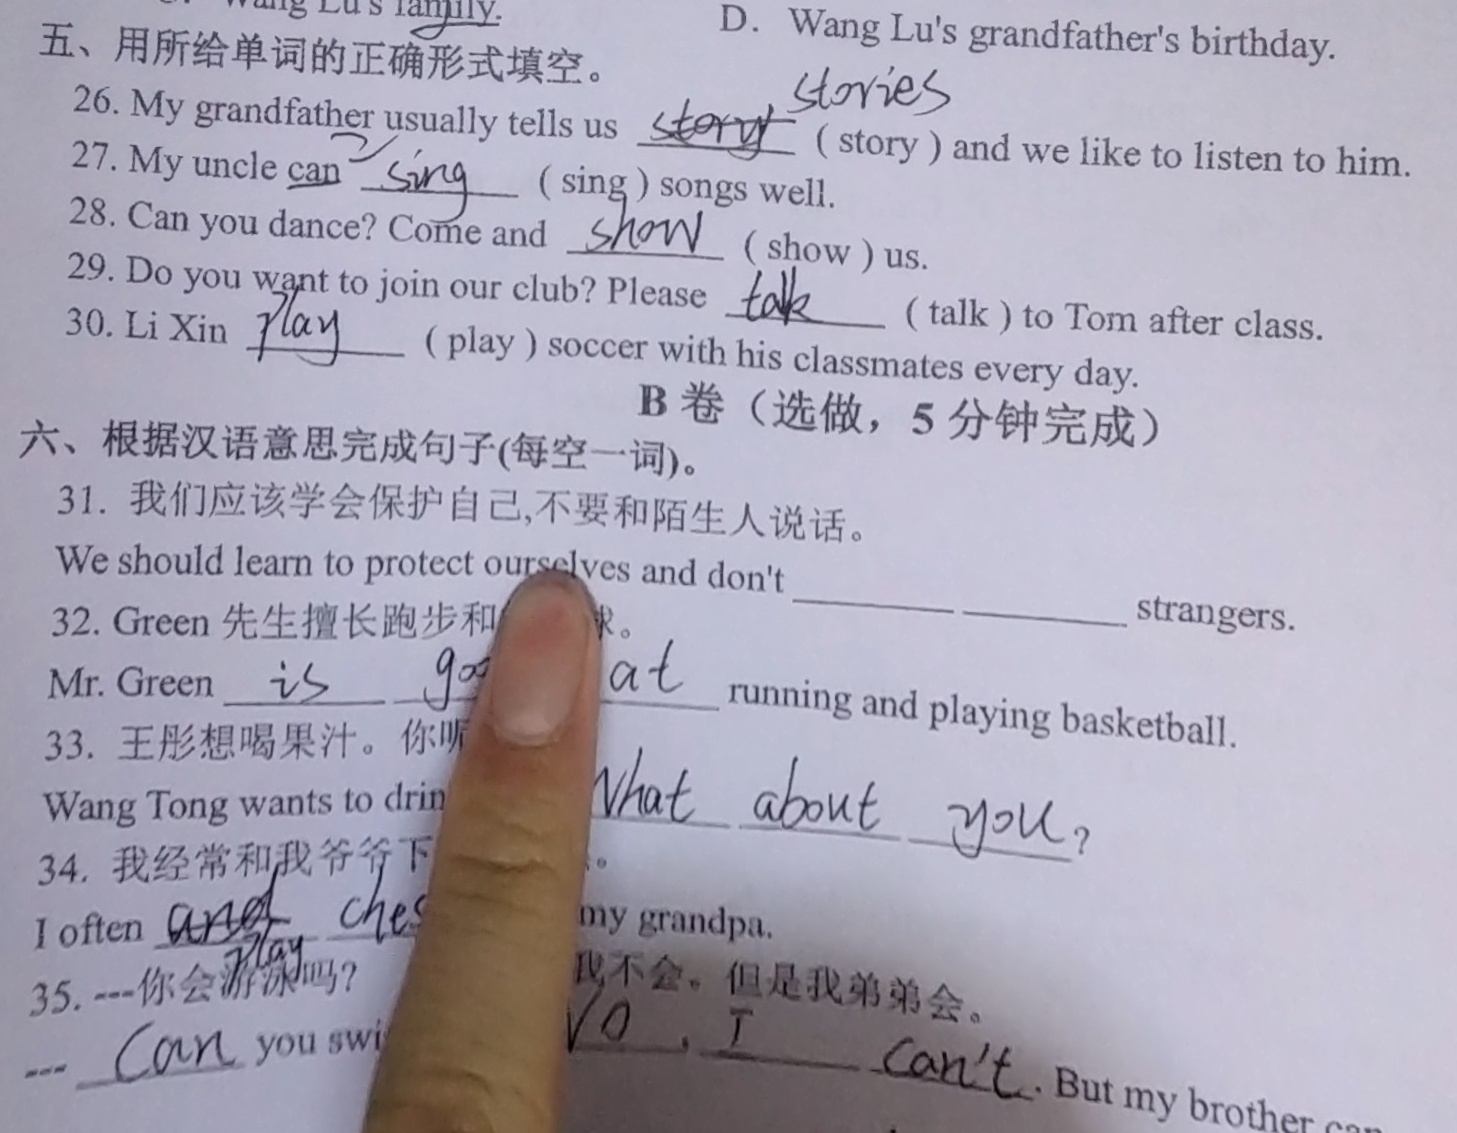 Wang Lu's family.
D. Wang Lu's grandfather's birthday.
五、用所给单词的正确形式填空。
stories
26. My grandfather usually tells us story ( story ) and we like to listen to him.
27. My uncle can sing ( sing ) songs well.
28. Can you dance? Come and show ( show ) us.
29. Do you want to join our club? Please talk ( talk ) to Tom after class.
30. Li Xin play ( play ) soccer with his classmates every day.
B 卷（选做，5 分钟完成）
六、根据汉语意思完成句子(每空一词)。
31. 我们应该学会保护自己,不要和陌生人说话。
We should learn to protect ourselves and don't ______ ______ strangers.
32. Green 先生擅长跑步和 球。
Mr. Green is at running and playing basketball.
33. 王彤想喝果汁。你呢
Wang Tong wants to What about you?
34. 我经常和我爷爷下 。
I often and my grandpa.
play
35. ---你会游泳吗? 我不会。但是我弟弟会。
--- Can you No, I can't. But my brother